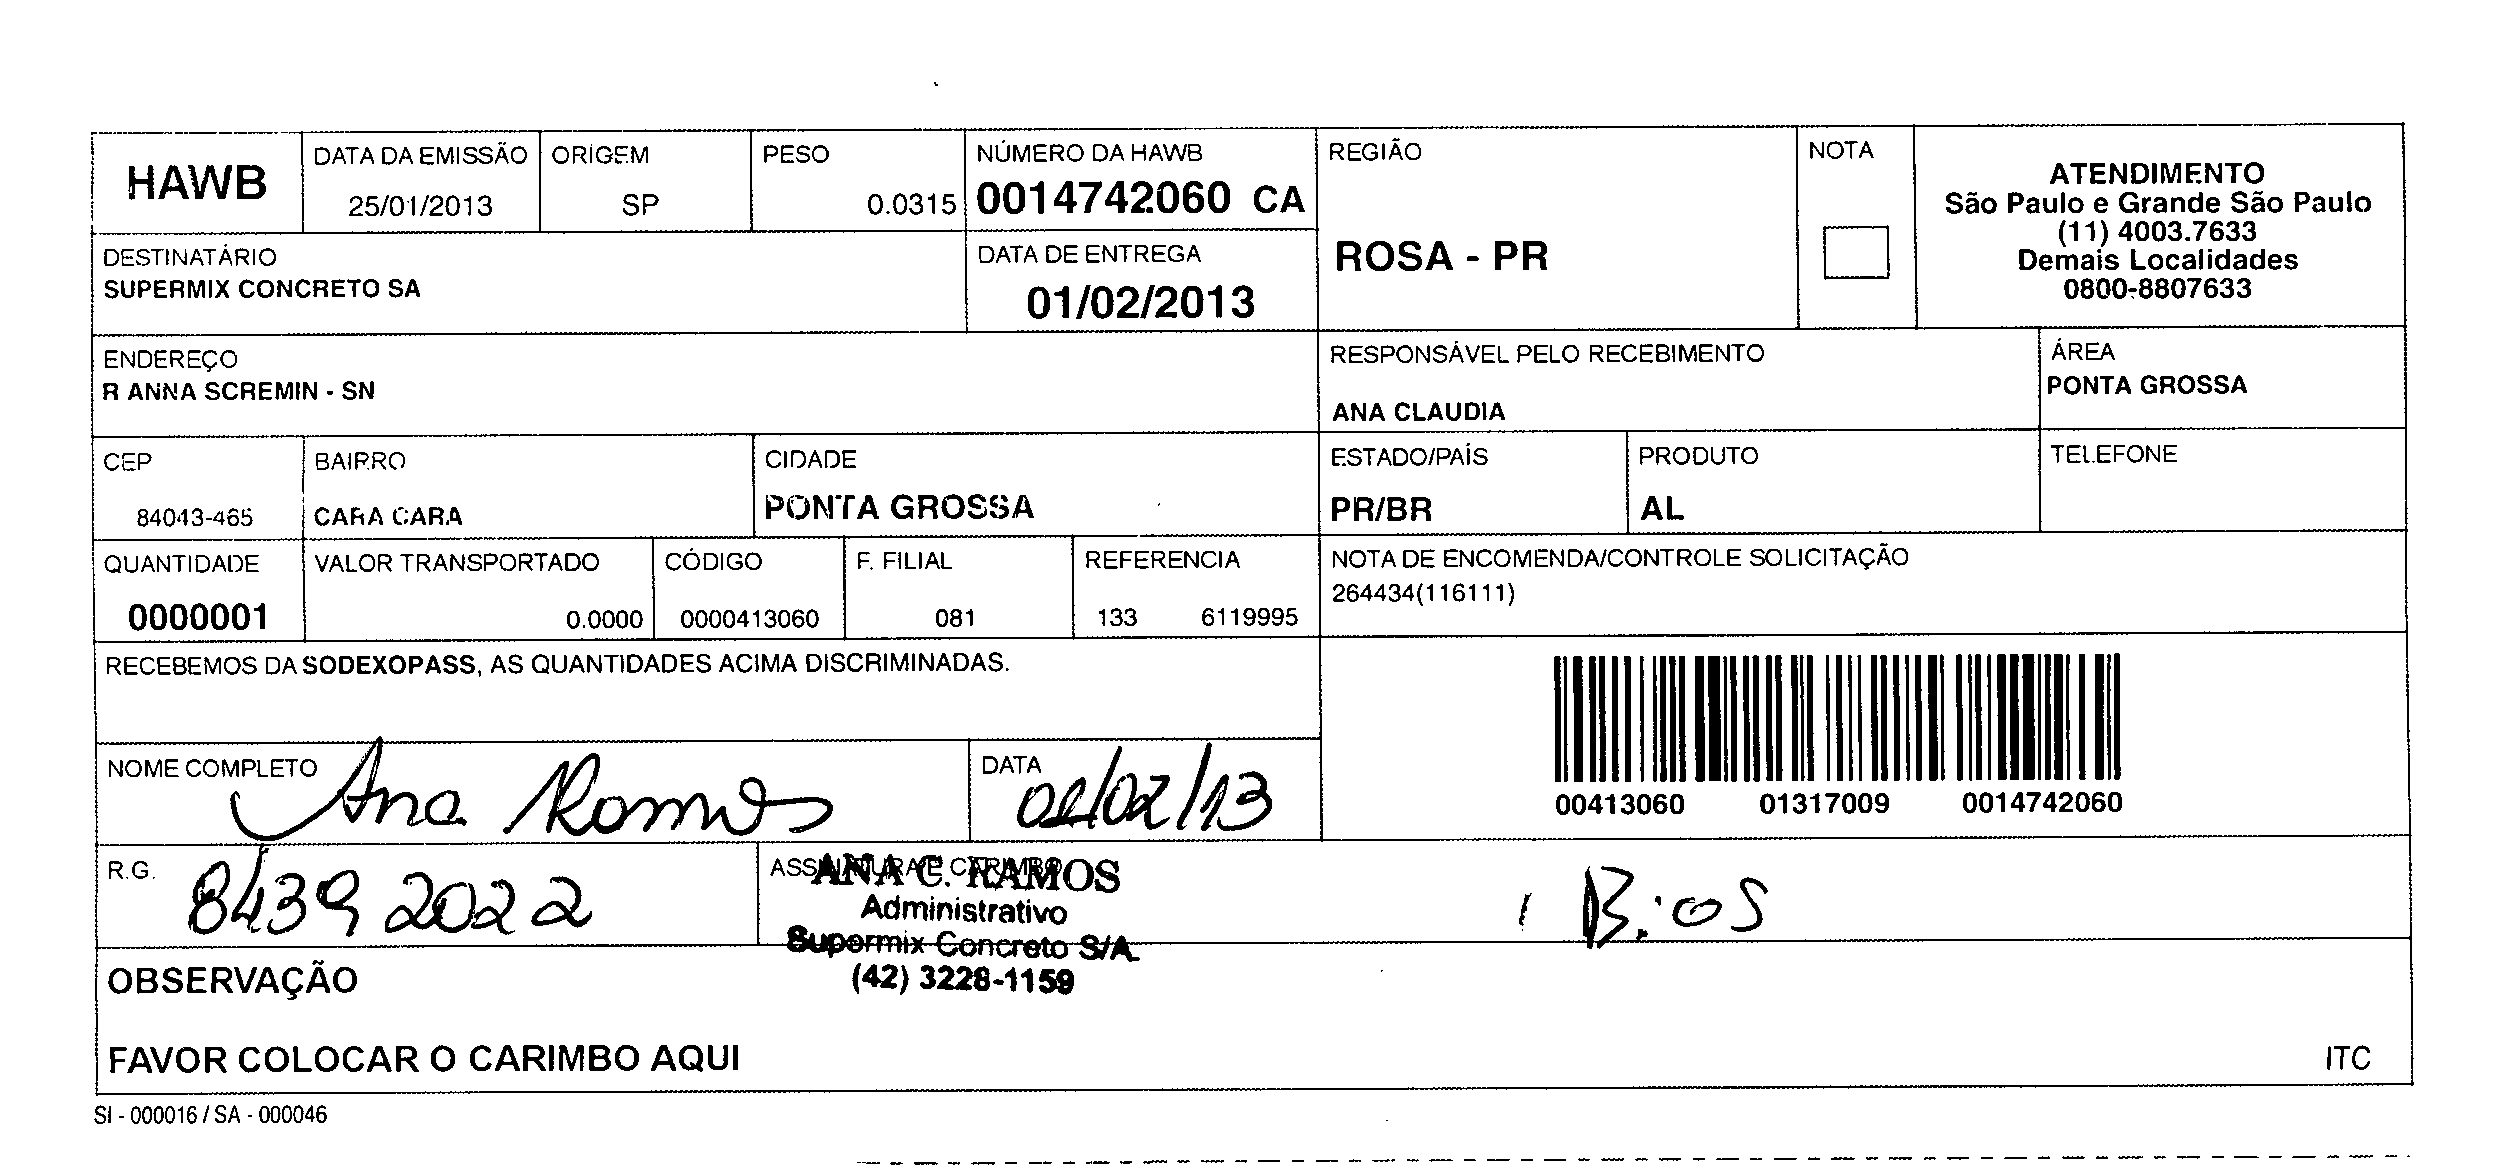 HAWB
DATA DA EMISSÃO
25/01/2013
ORIGEM
SP
PESO
0.0315
NÚMERO DA HAWB
0014742060 CA
REGIÃO
ROSA - PR
NOTA
ATENDIMENTO
São Paulo e Grande São Paulo
(11) 4003.7633
Demais Localidades
0800-8807633
DESTINATÁRIO
SUPERMIX CONCRETO SA
DATA DE ENTREGA
01/02/2013
ENDEREÇO
R ANNA SCREMIN - SN
RESPONSÁVEL PELO RECEBIMENTO
ANA CLAUDIA
ÁREA
PONTA GROSSA
CEP
84043-465
BAIRRO
CARA CARA
CIDADE
PONTA GROSSA
ESTADO/PAÍS
PR/BR
PRODUTO
AL
TELEFONE
QUANTIDADE
0000001
VALOR TRANSPORTADO
0.0000
CÓDIGO
0000413060
F. FILIAL
081
REFERENCIA
133 6119995
NOTA DE ENCOMENDA/CONTROLE SOLICITAÇÃO
264434(116111)
RECEBEMOS DA SODEXOPASS, AS QUANTIDADES ACIMA DISCRIMINADAS.
00413060 01317009 0014742060
NOME COMPLETO
Ana Ramos
DATA
01/02/13
R.G.
8439 2022
ASSINATURA E CARIMBO
ANA C. RAMOS
Administrativo
Supermix Concreto S/A
(42) 3228-1159
OBSERVAÇÃO
FAVOR COLOCAR O CARIMBO AQUI
ITC
SI - 000016 / SA - 000046